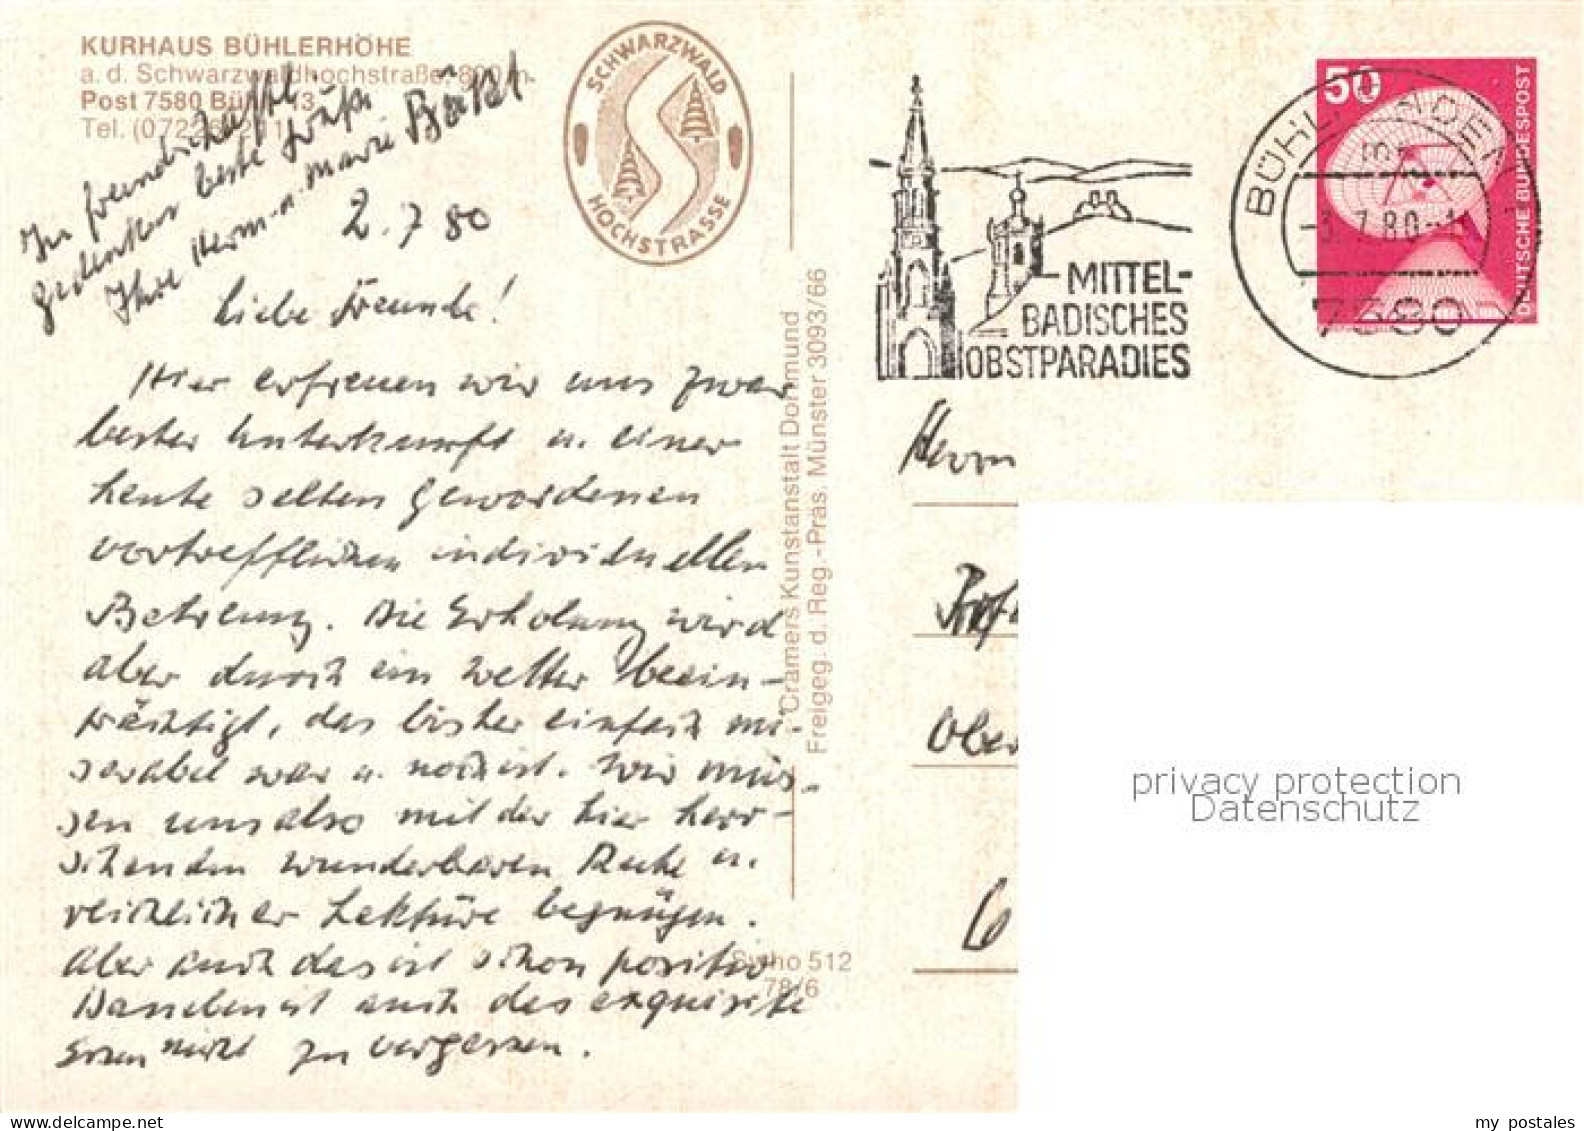 KURHAUS BÜHLERHÖHE
a. d. Schwarzwaldhochstraße 800 m
Post 7580 Bühl 13
Tel. (0722
In freundschaftl.
gedenken beste Grüße
Ihre Herm. u. Marie
2.7.80
SCHWARZWALD
HOCHSTRASSE
Liebe Freunde!
Hier erfreuen wir uns zwar
bester Unterkunft u. einer
heute selten gewordenen
vortrefflichen individuellen
Betreuung. Die Erholung wird
aber durch ein Wetter beein-
trächtigt, das bisher einfach mi-
serabel war u. noch ist. Wir müs-
sen uns also mit der hier herr-
schenden wunderbaren Ruhe u.
reichlicher Lektüre begnügen.
Aber auch das ist schon positiv
Daneben ist auch das exquisite
Essen nicht zu vergessen.
Cramers Kunstanstalt Dortmund
Freigeg. d. Reg.-Präs. Münster 3093/66
512
78/6
MITTEL-
BADISCHES
OBSTPARADIES
50
DEUTSCHE BUNDESPOST
BÜHL, BADEN
-3.7.80-
7580
Herrn
Prof
Ober
6
privacy protection
Datenschutz
my postales